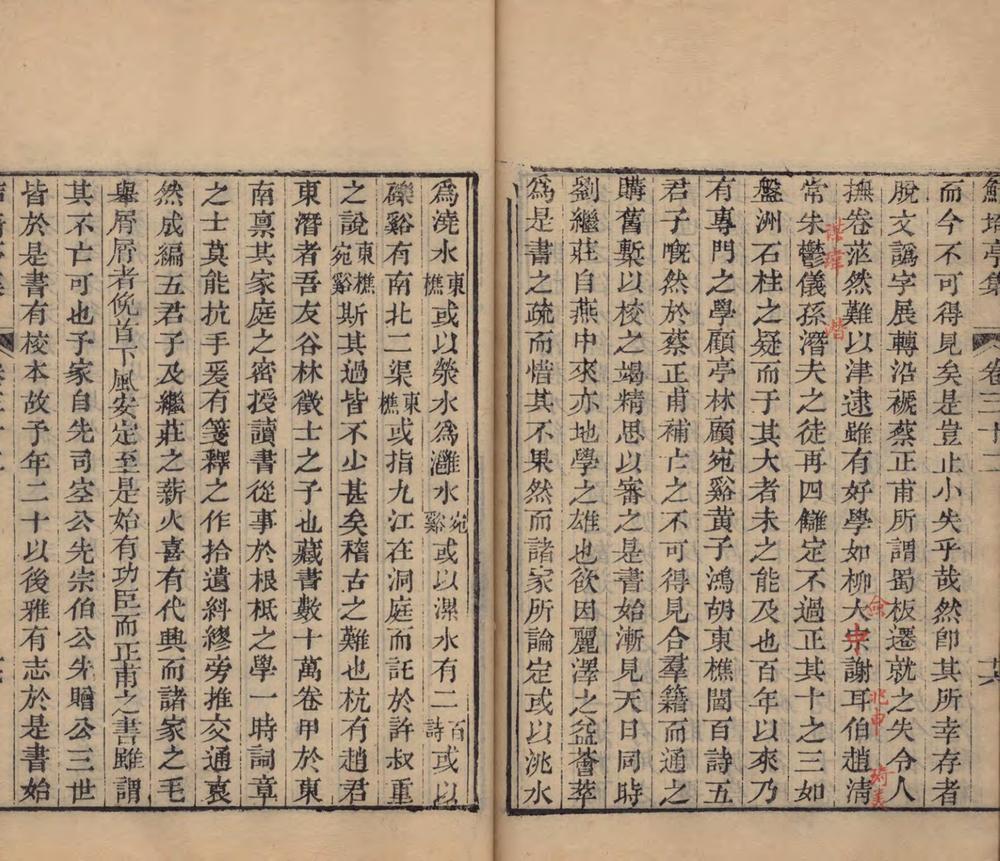 鮚埼亭集
卷三十二
而今不可得見矣是豈止小失乎哉然卽其所幸存者
脫文譌字展轉沿襪蔡正甫所謂蜀板遷就之失令人
撫卷茫然難以津逮雖有好學如柳大宗謝耳伯趙淸
僉
中
兆申
琦美
常朱鬱儀孫潛夫之徒再四讎定不過正其十之三如
謀㙔
潛
盤洲石柱之疑而于其大者未之能及也百年以來乃
有專門之學顧亭林顧宛谿黃子鴻胡東樵閻百詩五
君子慨然於蔡正甫補亡之不可得見合羣籍而通之
購舊槧以校之竭精思以審之是書始漸見天日同時
劉繼莊自燕中來亦地學之雄也欲因麗澤之益薈萃
爲是書之疏而惜其不果然而諸家所論定或以洮水
爲澆水東樵或以滎水爲灉水宛谿或以漯水有二百詩或以
礫谿有南北二渠東樵或指九江在洞庭而託於許叔重
之說東樵宛谿斯其過皆不少甚矣稽古之難也杭有趙君
東潛者吾友谷林徵士之子也藏書數十萬卷甲於東
南禀其家庭之密授讀書從事於根柢之學一時詞章
之士莫能抗手爰有箋釋之作拾遺糾繆旁推交通裒
然成編五君子及繼莊之薪火喜有代興而諸家之毛
舉屑屑者俛首下風安定至是始有功臣而正甫之書雖謂
其不亡可也予家自先司空公先宗伯公先贈公三世
皆於是書有校本故予年二十以後雅有志於是書始